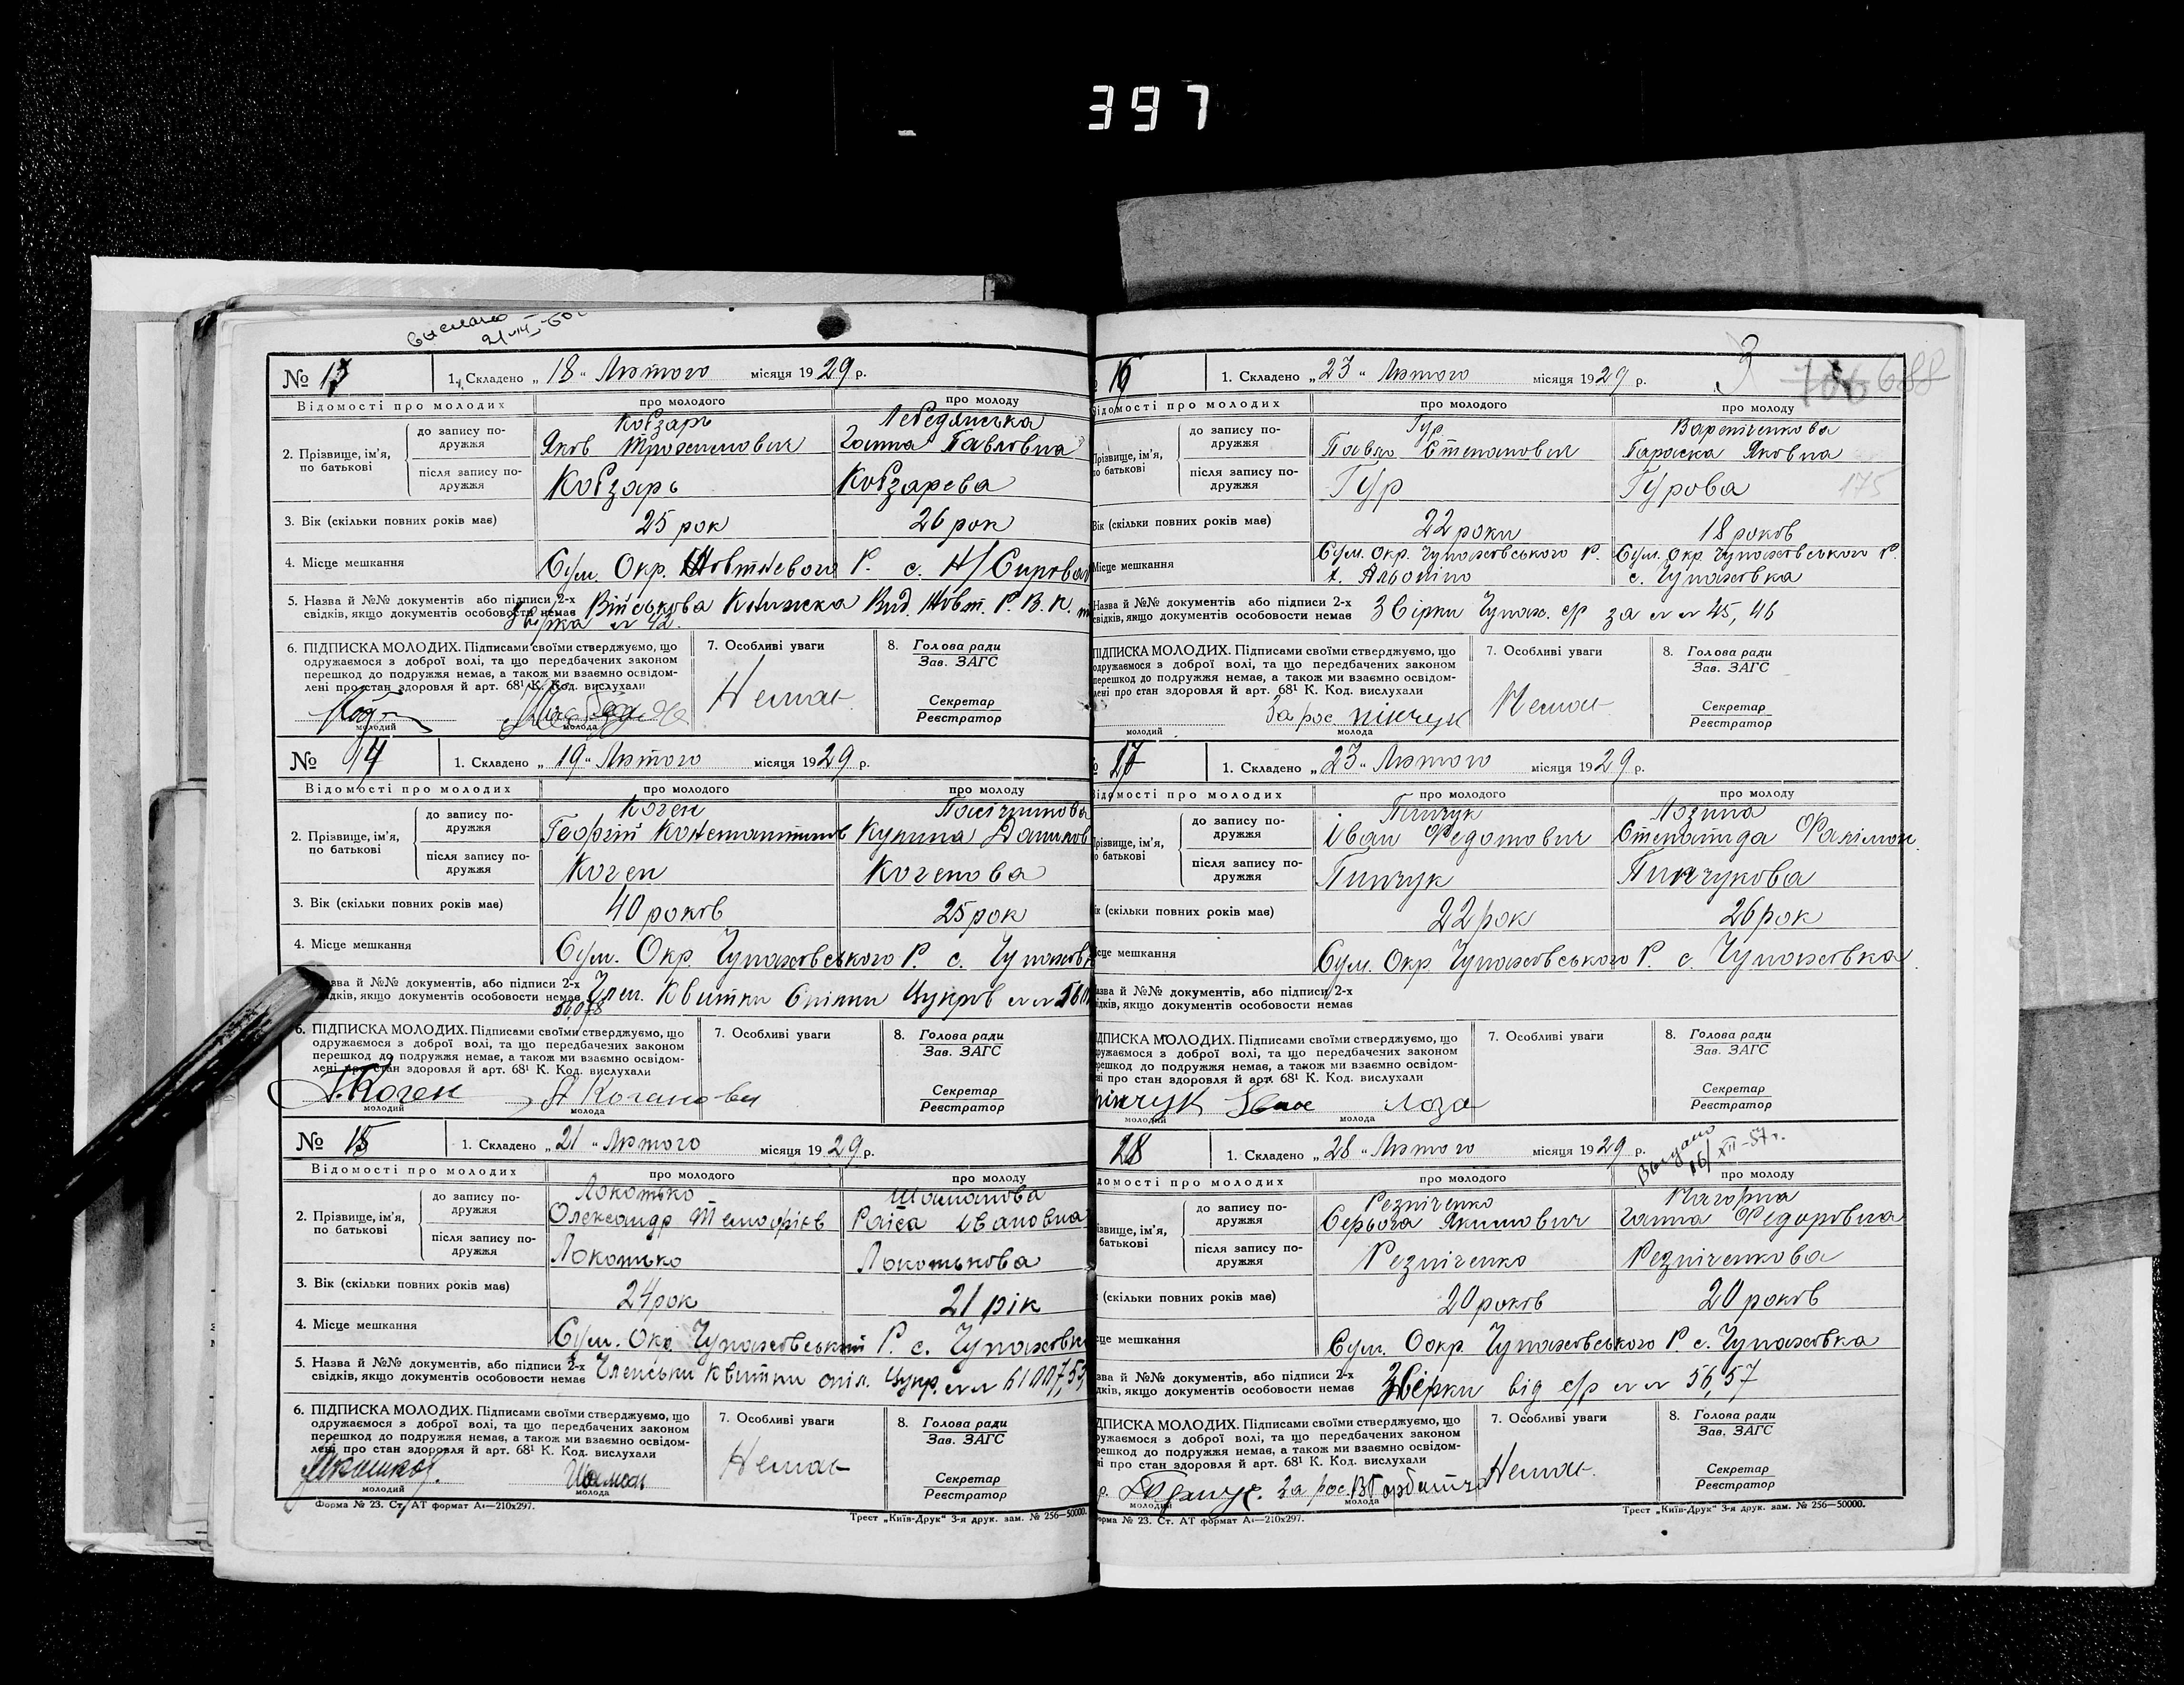 397
выслано
№ 13
1. Складено „18“ Лютого місяця 1929 р.
Відомості про молодих
про молодого
про молоду
2. Прізвище, ім'я, по батькові
до запису подружжя
Кобзарь
Яков Трохимович
Лебединська
Ганна Павловна
після запису подружжя
Кобзарь
Кобзарева
3. Вік (скільки повних років має)
25 рок
26 рок
4. Місце мешкання
Сум. Окр. Жовтневого Р. с. Н/Сировая
5. Назва й №№ документів або підписи 2-х
свідків, якщо документів особовости немає
Військова Книжка Вид. Жовт. Р. В. К.
Звірка № 42.
6. ПІДПИСКА МОЛОДИХ. Підписами своїми стверджуємо, що
одружаємося з доброї волі, та що передбачених законом
перешкод до подружжя немає, а також ми взаємно освідом-
лені про стан здоровля й арт. 68¹ К. Код. вислухали
молодий
молода
7. Особливі уваги
Немає
8. Голова ради
Зав. ЗАГС
Секретар
Реєстратор
№ 14
1. Складено „19“ Лютого місяця 1929 р.
Відомості про молодих
про молодого
про молоду
2. Прізвище, ім'я, по батькові
до запису подружжя
Коген
Георгій
Пасічникова
після запису подружжя
Коген
Когенова
3. Вік (скільки повних років має)
40 років
25 рок
4. Місце мешкання
Сум. Окр. Чупахівського Р. с. Чупахівк
Назва й №№ документів, або підписи 2-х
свідків, якщо документів особовости немає
Член. Квитки Спілки Цукров №№
56,078
6. ПІДПИСКА МОЛОДИХ. Підписами своїми стверджуємо, що
одружаємося з доброї волі, та що передбачених законом
перешкод до подружжя немає, а також ми взаємно освідом-
лені про стан здоровля й арт. 68¹ К. Код. вислухали
Коген
молодий
молода
7. Особливі уваги
8. Голова ради
Зав. ЗАГС
Секретар
Реєстратор
№ 15
1. Складено „21“ Лютого місяця 1929 р.
Відомості про молодих
про молодого
про молоду
2. Прізвище, ім'я, по батькові
до запису подружжя
Локотько
Олександр Темофіїв
Шаманова
Раїса Івановна
після запису подружжя
Локотько
Локотькова
3. Вік (скільки повних років має)
24 рок
21 рік
4. Місце мешкання
Сум. Окр Чупахівський Р. с. Чупахівк
5. Назва й №№ документів, або підписи 2-х
свідків, якщо документів особовости немає
Членськи Квитки спіл. Цукр. №№
6. ПІДПИСКА МОЛОДИХ. Підписами своїми стверджуємо, що
одружаємося з доброї волі, та що передбачених законом
перешкод до подружжя немає, а також ми взаємно освідом-
лені про стан здоровля й арт. 68¹ К. Код. вислухали
Шаман
молодий
молода
7. Особливі уваги
Немає
8. Голова ради
Зав. ЗАГС
Секретар
Реєстратор
Форма № 23. Ст. АТ формат А₄—210х297.
Трест „Київ-Друк“ 3-я друк. зам. № 256—50000.
16
1. Складено „23“ Лютого місяця 1929 р.
3
106 688
ідомості про молодих
про молодого
про молоду
Прізвище, ім'я,
по батькові
до запису подружжя
Гур
Павло Степанович
Варениченкова
Параска Яковна
після запису подружжя
Гур
Гурова
175
Вік (скільки повних років має)
22 роки
18 років
Місце мешкання
Сум. Окр. Чупахівського Р.
Сум. Окр. Чупахівського Р.
с. Чупахівка
Назва й №№ документів або підписи 2-х
свідків, якщо документів особовости немає
Звірки Чупах. с/р за №№ 45, 46
ПІДПИСКА МОЛОДИХ. Підписами своїми стверджуємо, що
одружаємося з доброї волі, та що передбачених законом
перешкод до подружжя немає, а також ми взаємно освідом-
лені про стан здоровля й арт. 68¹ К. Код. вислухали
За рос. пінчук
молодий
молода
7. Особливі уваги
Немає
8. Голова ради
Зав. ЗАГС
Секретар
Реєстратор
1. Складено „23“ Лютого місяця 1929 р.
ідомості про молодих
про молодого
про молоду
Прізвище, ім'я,
по батькові
до запису подружжя
Пинчук
Іван Федотович
Лозина
Степанида Филімон
після запису подружжя
Пинчук
Пинчукова
Вік (скільки повних років має)
22 рок
26 рок
сце мешкання
Сум. Окр. Чупахівського Р. с. Чупахівка.
азва й №№ документів, або підписи 2-х
ідків, якщо документів особовости немає
ІДПИСКА МОЛОДИХ. Підписами своїми стверджуємо, що
одружаємося з доброї волі, та що передбачених законом
перешкод до подружжя немає, а також ми взаємно освідом-
ні про стан здоровля й арт. 68¹ К. Код. вислухали
пінчук Іван Лоза
молодий
молода
7. Особливі уваги
8. Голова ради
Зав. ЗАГС
Секретар
Реєстратор
1. Складено „28“ Лютого місяця 1929 р.
Выдано
16/XII-57 г.
домості про молодих
про молодого
про молоду
ізвище, ім'я,
батькові
до запису подружжя
Резніченко
Серьога Якимович
Нагорна
Ганна Федоровна
після запису подружжя
Резніченко
Резніченкова
(скільки повних років має)
20 років
20 років
це мешкання
Сум. Оокр. Чупахівського Р. с. Чупахівка
зва й №№ документів, або підписи 2-х
дків, якщо документів особовости немає
Звірки від с/р №№ 56, 57
ДПИСКА МОЛОДИХ. Підписами своїми стверджуємо, що
ружаємося з доброї волі, та що передбачених законом
решкод до подружжя немає, а також ми взаємно освідом-
ні про стан здоровля й арт. 68¹ К. Код. вислухали
За рос.
молодий
молода
7. Особливі уваги
Немає.
8. Голова ради
Зав. ЗАГС
Секретар
Реєстратор
орма № 23. Ст. АТ формат А₄—210х297.
Трест „Київ-Друк“ 3-я друк. зам. № 256—50000.